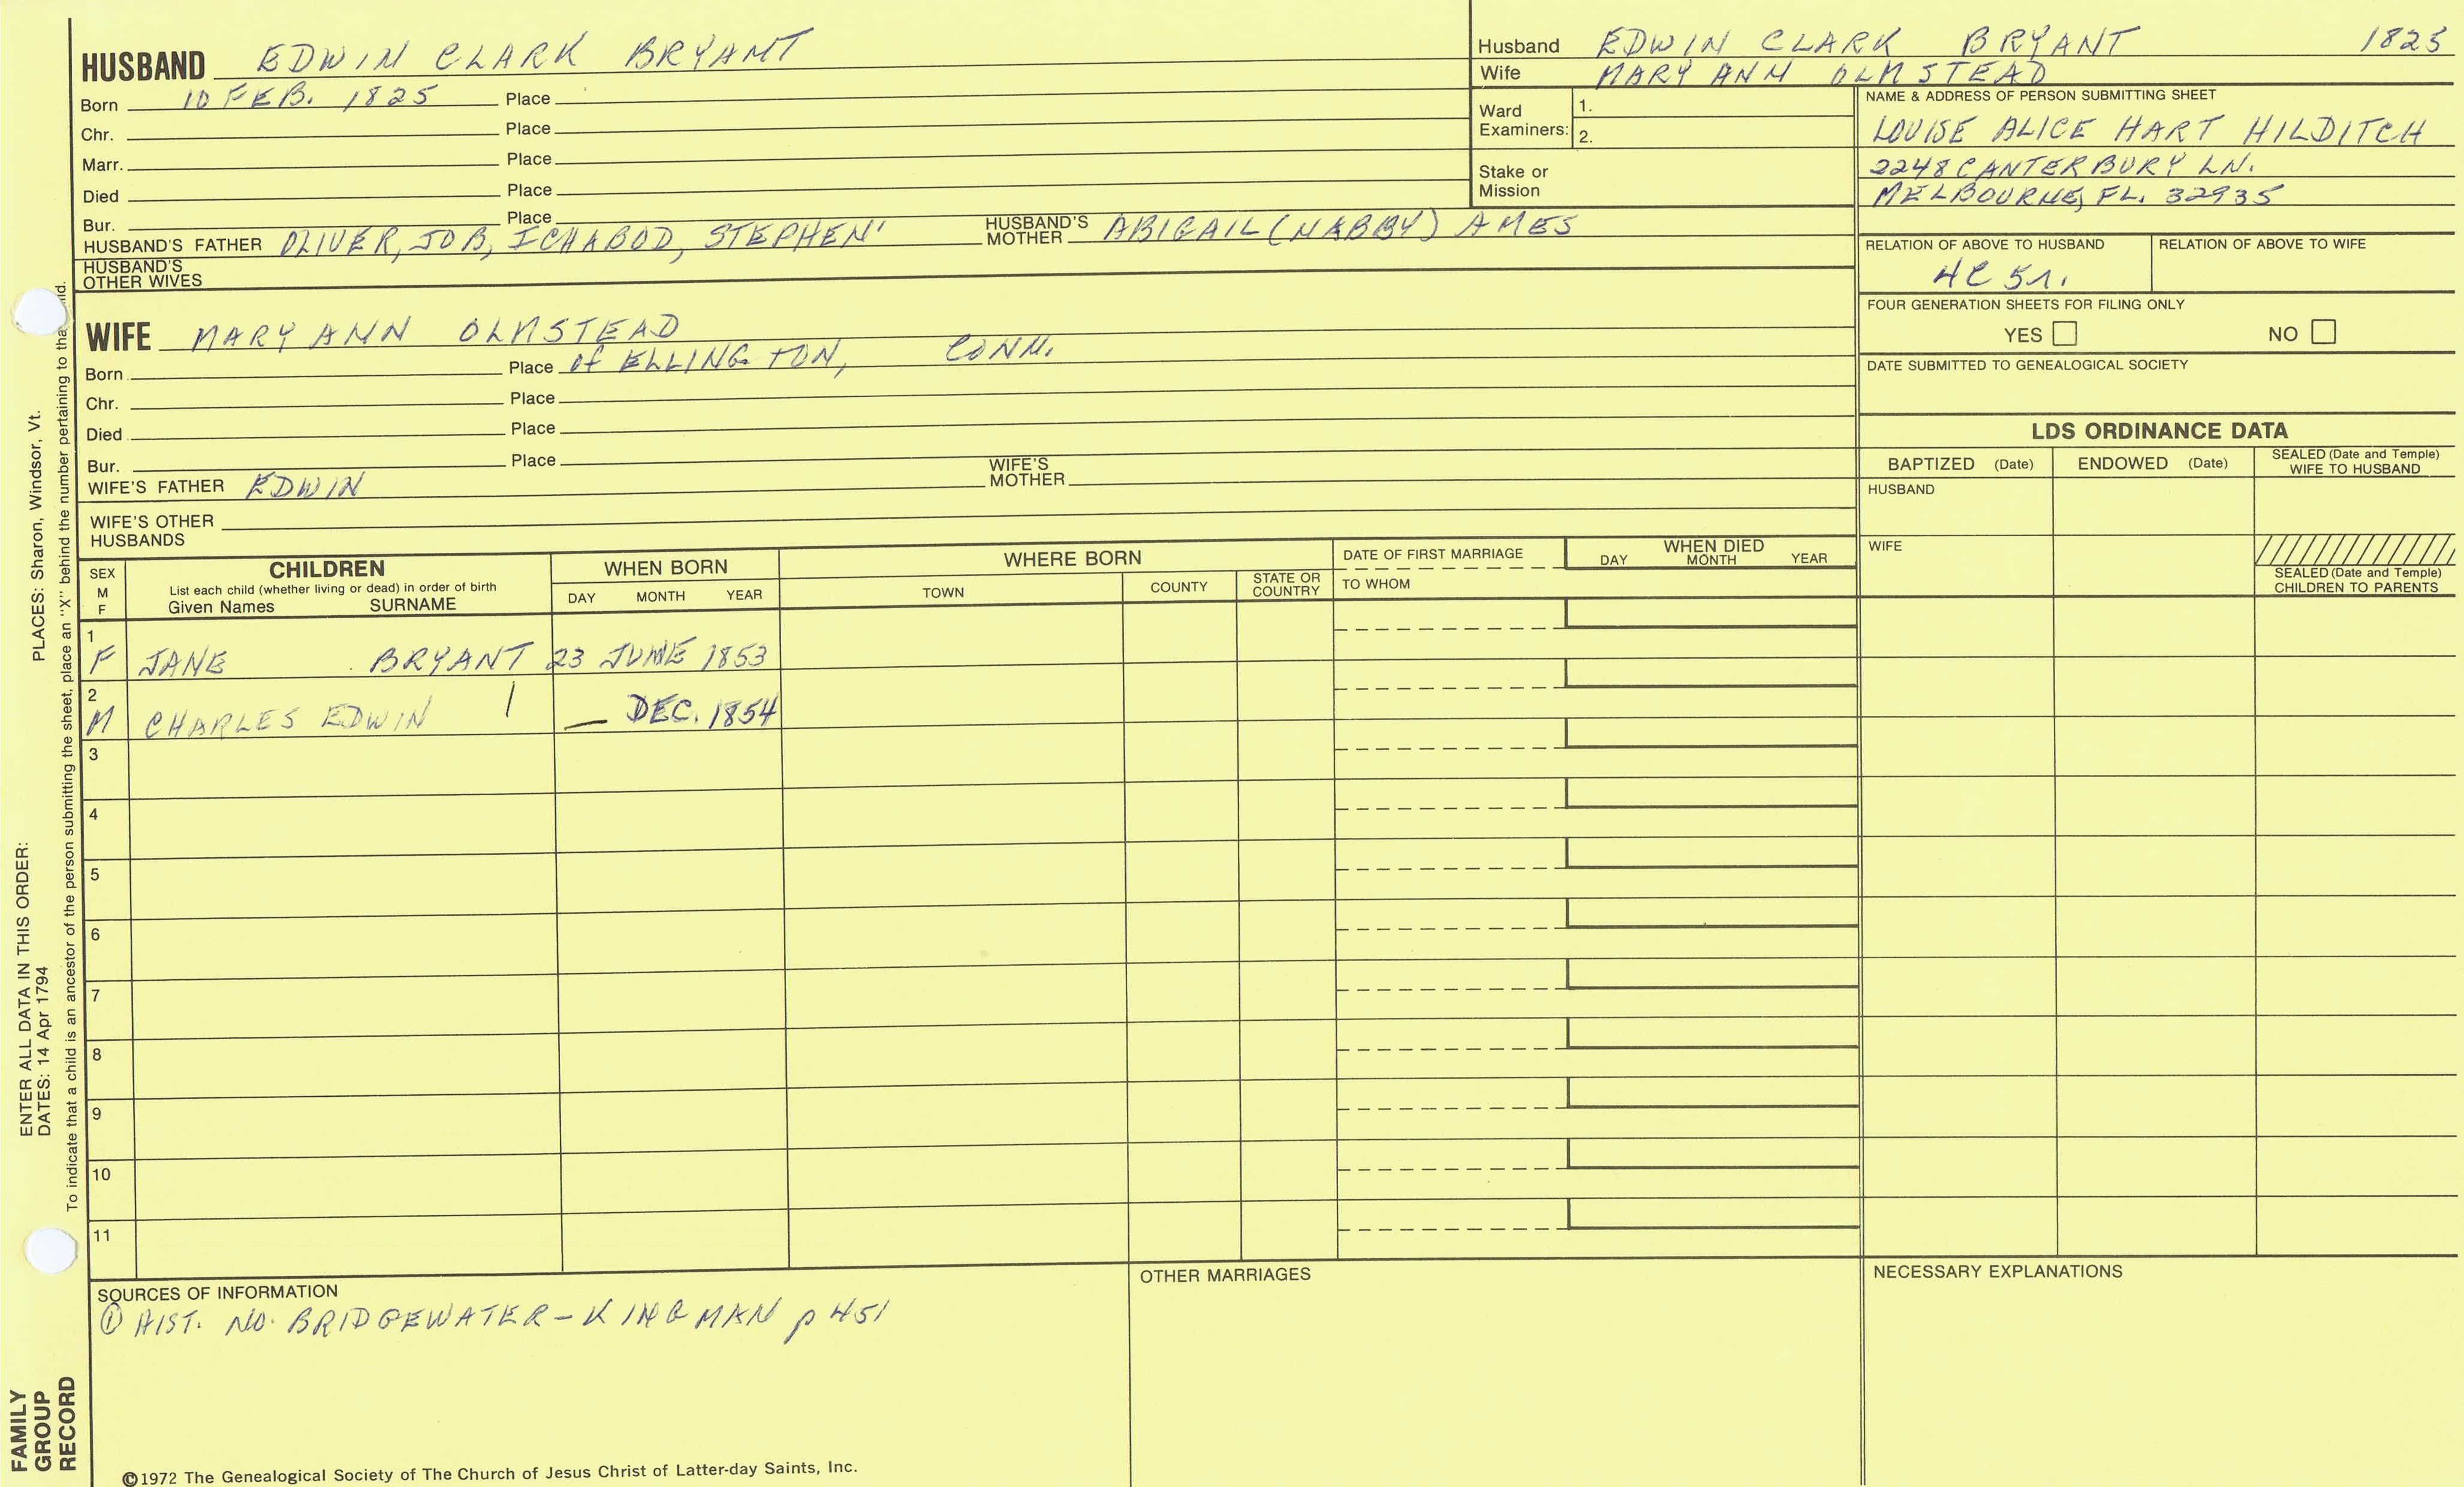 HUSBAND EDWIN CLARK BRYANT
Born 10 FEB. 1825 Place
Chr. Place
Marr. Place
Died Place
Bur. Place
HUSBAND'S FATHER OLIVER, JOB, ICHABOD, STEPHEN' HUSBAND'S MOTHER ABIGAIL (NABBY) AMES
HUSBAND'S OTHER WIVES
Husband EDWIN CLARK BRYANT 1825
Wife MARY ANN OLMSTEAD
Ward Examiners: 1.
2.
Stake or Mission
NAME & ADDRESS OF PERSON SUBMITTING SHEET
LOUISE ALICE HART HILDITCH
2248 CANTERBURY LN.
MELBOURNE, FL. 32935
RELATION OF ABOVE TO HUSBAND RELATION OF ABOVE TO WIFE
4C 5r.
FOUR GENERATION SHEETS FOR FILING ONLY
YES NO
DATE SUBMITTED TO GENEALOGICAL SOCIETY
WIFE MARY ANN OLMSTEAD
Born Place of ELLINGTON, CONN.
Chr. Place
Died Place
Bur. Place
WIFE'S FATHER EDWIN WIFE'S MOTHER
WIFE'S OTHER HUSBANDS
LDS ORDINANCE DATA
BAPTIZED (Date) ENDOWED (Date) SEALED (Date and Temple) WIFE TO HUSBAND
HUSBAND
WIFE
SEALED (Date and Temple) CHILDREN TO PARENTS
SEX M F CHILDREN WHEN BORN WHERE BORN DATE OF FIRST MARRIAGE WHEN DIED
List each child (whether living or dead) in order of birth
Given Names SURNAME DAY MONTH YEAR TOWN COUNTY STATE OR COUNTRY TO WHOM DAY MONTH YEAR
1
F JANE BRYANT 23 JUNE 1853
2
M CHARLES EDWIN | — DEC. 1854
3
4
5
6
7
8
9
10
11
SOURCES OF INFORMATION
① HIST. NO. BRIDGEWATER - KINGMAN p 451
OTHER MARRIAGES
NECESSARY EXPLANATIONS
©1972 The Genealogical Society of The Church of Jesus Christ of Latter-day Saints, Inc.
FAMILY GROUP RECORD
ENTER ALL DATA IN THIS ORDER:
DATES: 14 Apr 1794 PLACES: Sharon, Windsor, Vt.
To indicate that a child is an ancestor of the person submitting the sheet, place an "X" behind the number pertaining to tha ild.